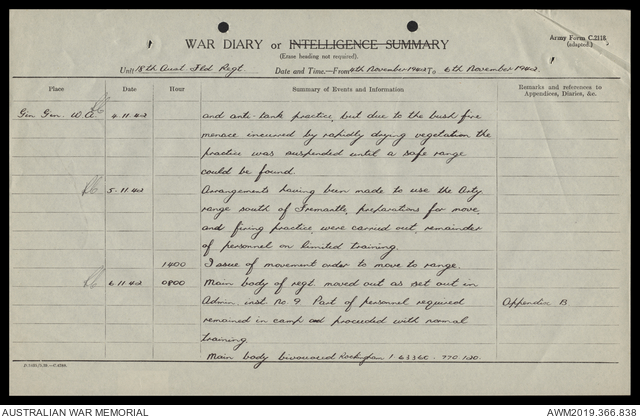 WAR DIARY or INTELLIGENCE SUMMARY
Army Form C.2118
(adapted.)
(Erase heading not required).
Unit 18th Aust. Fld Regt. Date and Time.—From 4th November 1942 To 6th November 1942.
Place Date Hour Summary of Events and Information Remarks and references to Appendices, Diaries, &c.
Gin Gin. W.A. 4.11.42 and anti-tank practice, but due to the bush fire
menace incurred by rapidly drying vegetation the
practice was suspended until a safe range
could be found.
5.11.42 Arrangements having been made to use the Arty
range south of Fremantle, preparations for move,
and firing practice were carried out, remainder
of personnel on limited training.
1400 Issue of movement order to move to range.
6.11.42 0800 Main body of regt. moved out as set out in
Admin. inst. No. 9 Part of personnel required Appendix B
remained in camp and proceeded with normal
training
Main body bivouaced Rockingham 1 63360 - 770 130.
AUSTRALIAN WAR MEMORIAL
AWM2019.366.838